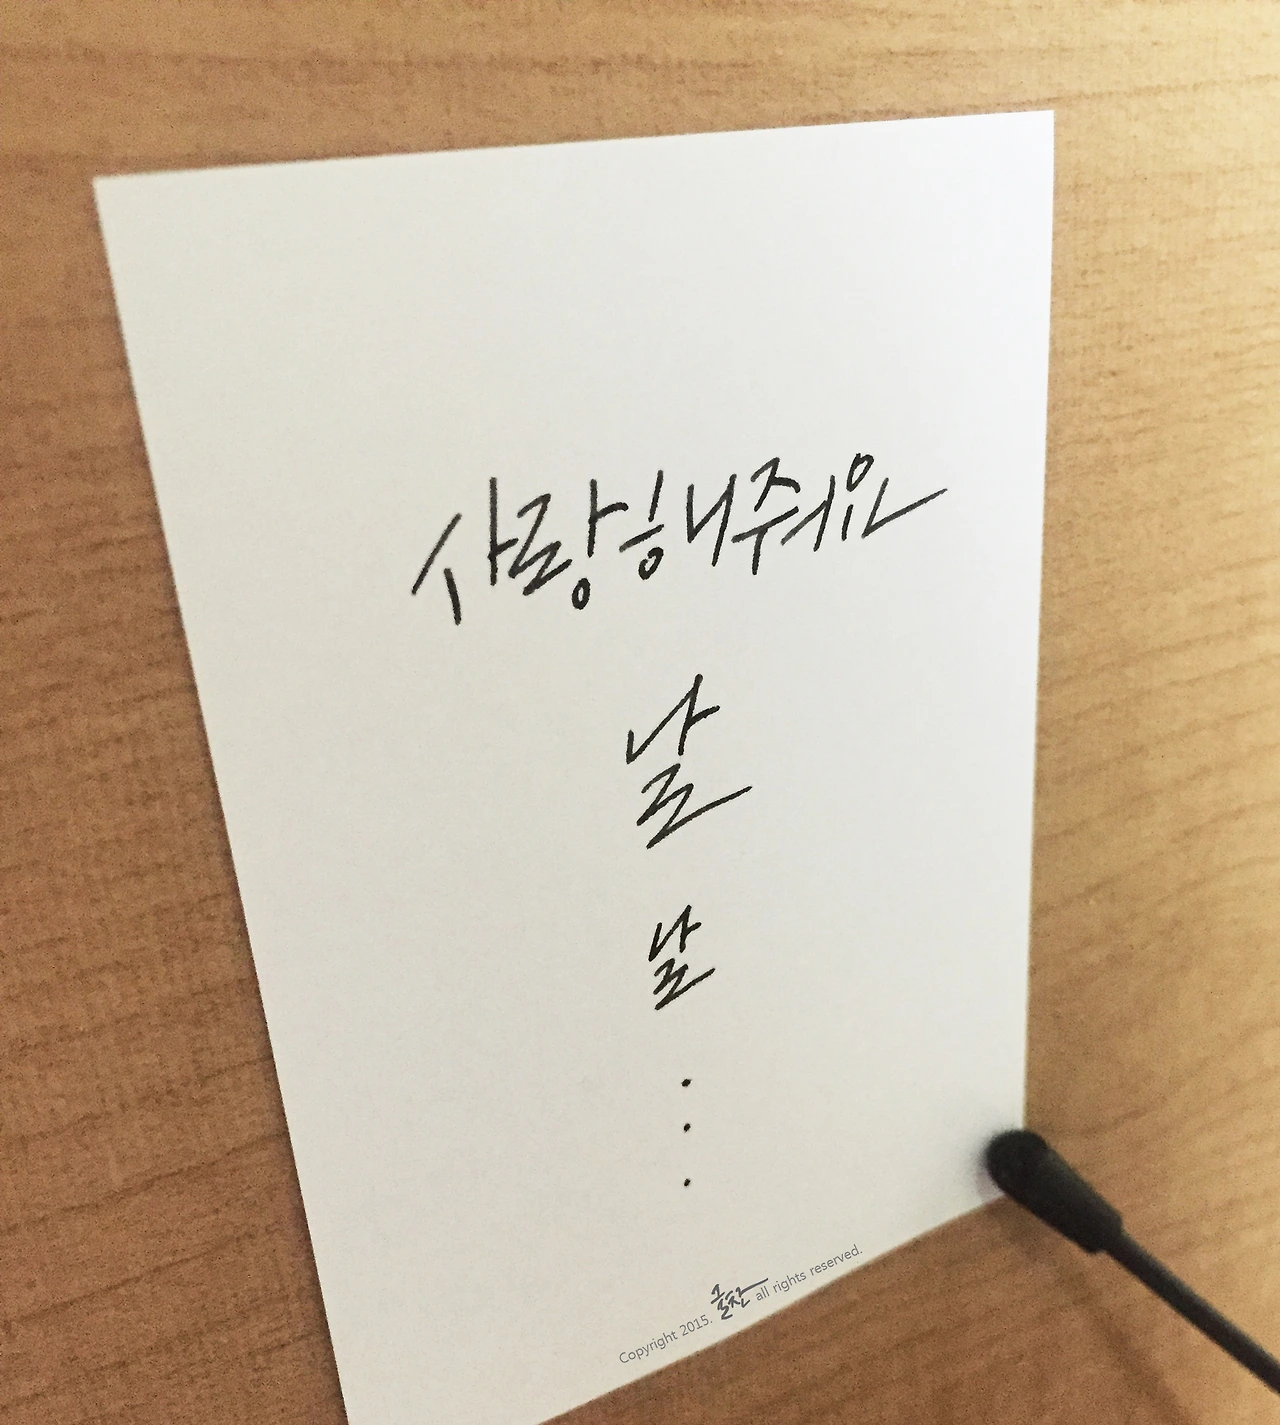 사랑해줘요
날
날
.
.
.
Copyright 2015. all rights reserved.